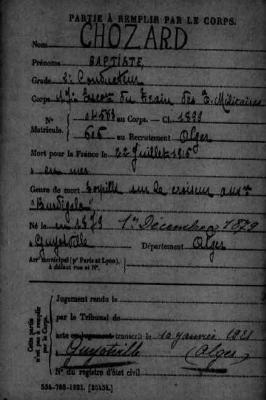 PARTIE À REMPLIR PAR LE CORPS.
Nom CHOZARD
Prénoms BAPTISTE,
Grade 2e Conducteur
Corps 17e Escon du Train des E. Militaires
N° au Corps. — Cl. 1899
Matricule. 615 au Recrutement Alger
Mort pour la France le 22 Juillet 1916
en mer
Genre de mort torpillé sur le croiseur auxre
"Burdigala"
Né le en 1879 1er Décembre 1879
Guyotville Département Alger
Arrt municipal (pr Paris et Lyon),
à défaut rue et N°.
Cette partie
n'est pas à remplir
par le Corps.
Jugement rendu le
par le Tribunal de
acte ou jugement transcrit le 10 janvier 1921
Guyotville (Alger)
N° du registre d'état civil
534-708-1921. [26434.]